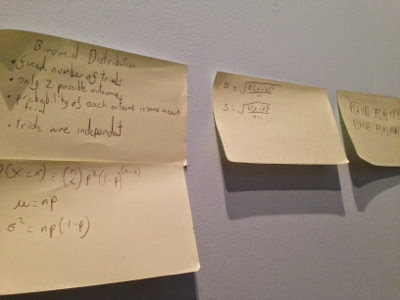 Binomial Distribut
• fixed number of trials
• only 2 possible outcomes
• probability of each outcome is same in each
trial
• trials are independent
P(X=x) = (n x) p^2 (1-p)^(n-x)
μ = np
σ² = np(1-p)
σ = √(Σ(x-μ)²/n)
S = √(Σ(x-x̄)²/n-1)